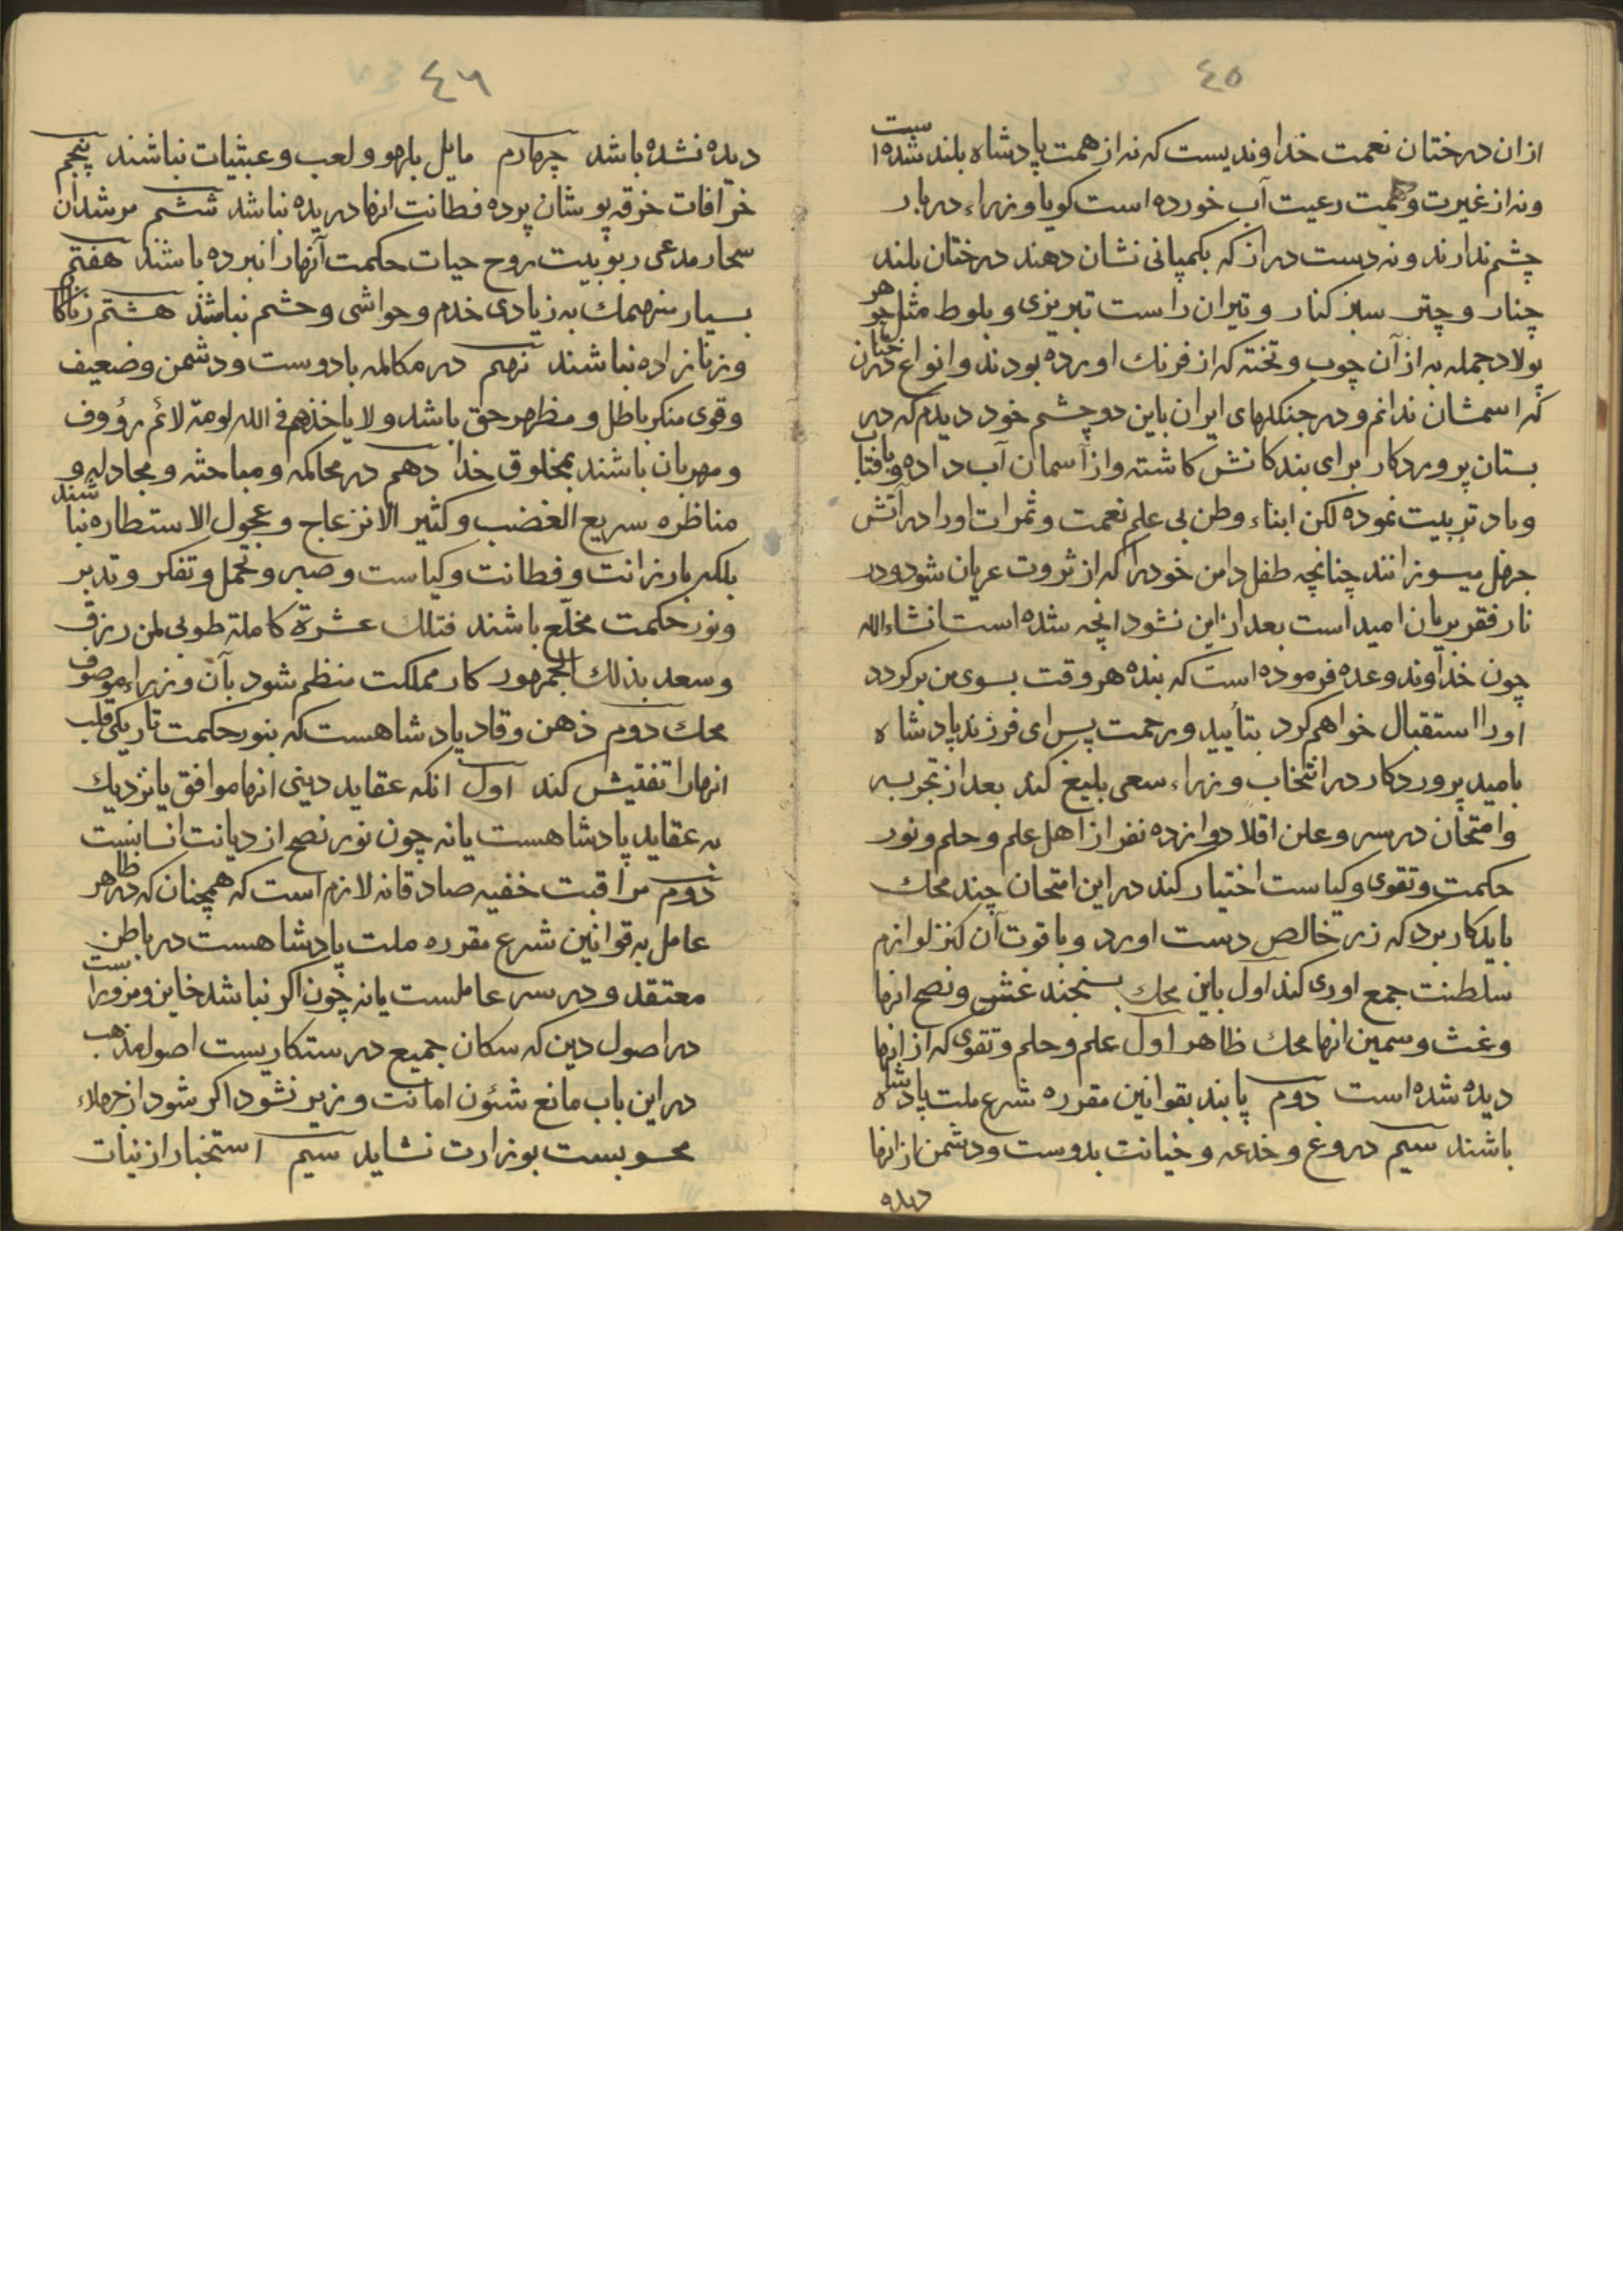 ٤٥
ازان درختان نعمت خداوندیست که نه از همت پادشاه بلند شده است
ونه از غیرت و همت رعیت آب خورده است کویا وزراء دربار
چشم ندارند ونه دست دراز که بکمپانی نشان دهند درختان بلند
چنار و چتر سبز کنار و تیران راست تبریزی و بلوط مثل جوهر
پولاد جمله به از آن چوب و تخته که از فرنك اورده بودند وانواع درختان
که اسمشان ندانم ودر جنکلهای ایران باین دو چشم خود دیدم که در
بستان پروردکار برای بندکانش کاشته واز آسمان آب داده وبافتاب
وباد تربیت نموده لکن ابناء وطن بی علم نعمت وثمرات اورا در آتش
جهل میسوزانند چنانچه طفل دامن خودرا که از ثروت عریان شود ودر
نار فقر بریان امید است بعد از این نشود انچه شده است انشاءالله
چون خداوند وعده فرموده است که بنده هر وقت بسوی من برکردد
اورا استقبال خواهم کرد بتأیید ورحمت پس ای فرزند پادشاه
بامید پروردکار در انتخاب وزراء سعی بلیغ کند بعد از تجربه
وامتحان در سر وعلن اقلا دوازده نفر از اهل علم وحلم ونور
حکمت وتقوی وکیاست اختیار کند در این امتحان چند محك
باید کار برد که زر خالص دست اورد وبا قوت آن کنز لوازم
سلطنت جمع اوری کند اول باین محك بسنجند غش ونصح انها
وغث وسمین انها محك ظاهر اول علم وحلم وتقوی که از انها
دیده شده است دوم پابند بقوانین مقرره شرع ملت پادشاه
باشند سیم دروغ وخدعه وخیانت بدوست ودشمن از انها
دیده
٤٦
دیده نشده باشد چهارم مایل بلهو ولعب وعبثیات نباشند پنجم
خرافات خرقه پوشان پرده فطانت انها دریده نباشد ششم مرشدان
سحار مدعی ربوبیت روح حیات حکمت آنهارا نبرده باشند هفتم
بسیار منهمك به زیادی خدم وحواشی وحشم نباشند هشتم زناکار
وزنازاده نباشند نهم در مکالمه با دوست ودشمن وضعیف
وقوی منکر باطل ومظهر حق باشد ولا یاخذهم فی الله لومة لائم رؤوف
ومهربان باشند بمخلوق خدا دهم در محاکمه ومباحثه ومجادله و
مناظره سریع الغضب وکثیر الانزعاج وعجول الاستطاره نباشند
بلکه بارزانت وفطانت وکیاست وصبر وتحمل وتفکر وتدبر
ونور حکمت مخلّع باشند فتلك عشرة کاملة طوبی لمن رزق
وسعد بذلك الجمهور کار مملکت منظم شود بآن وزراء موصوف
محك دوم ذهن وقاد پادشاهست که بنور حکمت تاریکی قلب
انهارا تفتیش کند اول انکه عقاید دینی انها موافق یا نزدیك
به عقاید پادشاهست یا نه چون نور نصح از دیانت انسانست
دوم مراقبت خفیه صادقانه لازم است که همچنان که در ظاهر
عامل به قوانین شرع مقرره ملت پادشاهست در باطن
معتقد ودر سر عاملست یا نه چون اکر نباشد خاین ومزور است
در اصول دین که سکان جمیع درستکاریست اصول مذهب
در این باب مانع شئون امانت وزیر نشود اکر شود از جهلاء
محسوبست بوزارت نشاید سیم استخبار از نیات